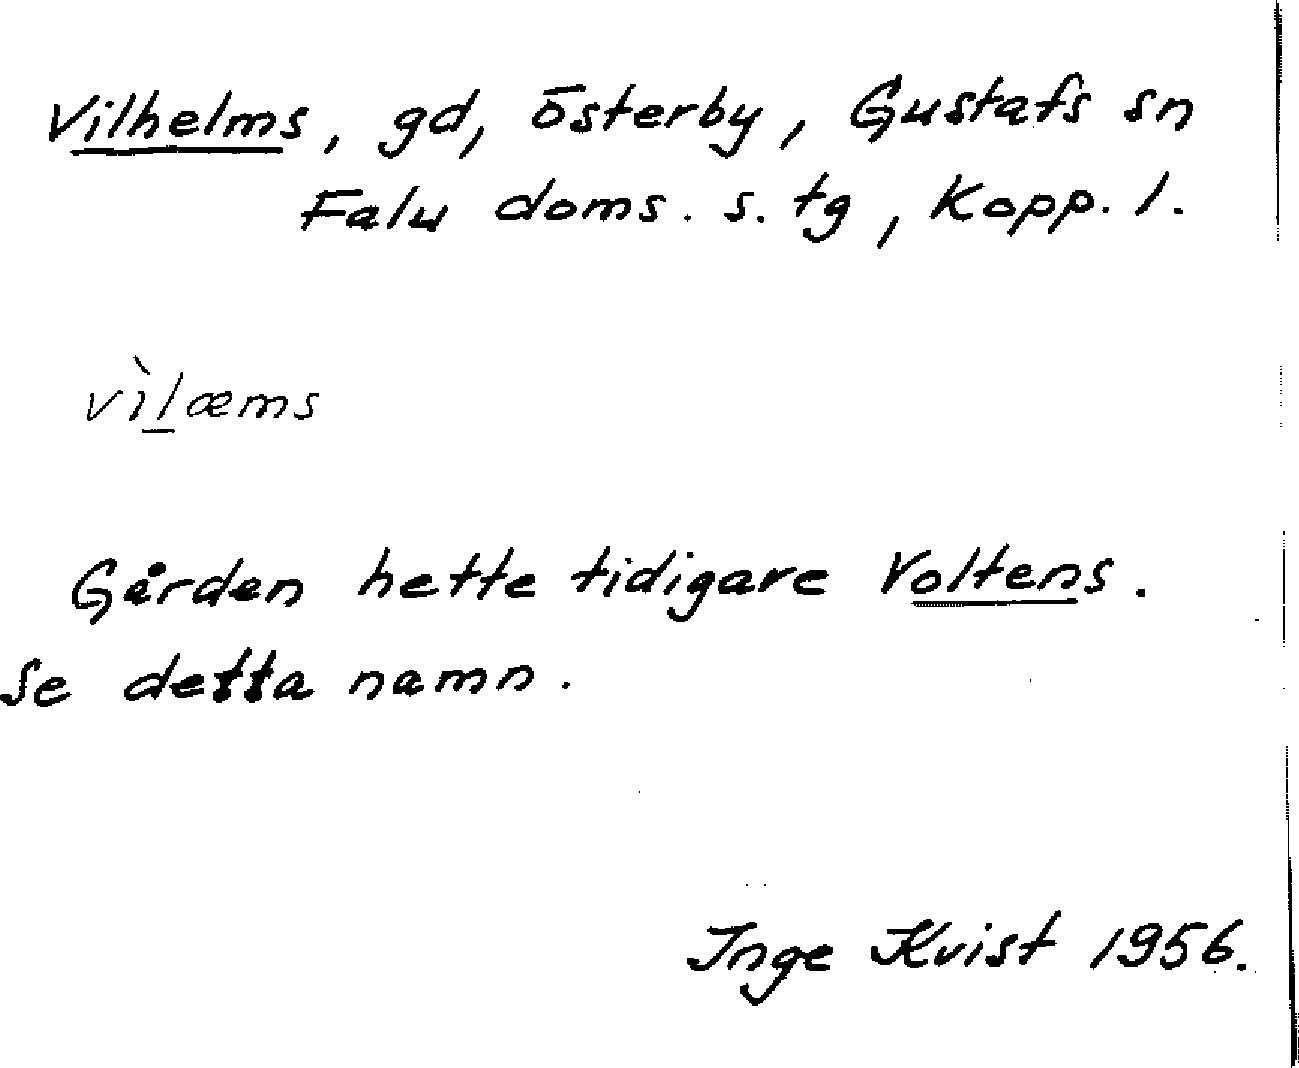 Vilhelms, gd, Österby, Gustafs sn
Falu doms. s. tg, Kopp. l.
vìlæms
Gården hette tidigare Voltens.
Se detta namn.
Inge Kvist 1956.